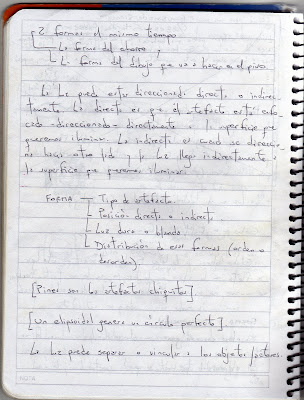 2 formas al mismo tiempo
La forma del chorro y
La forma del dibujo que va a hacer en el piso.
La Lz puede estar direccionada directa o indirec-
tamente. La directa es q' el artefacto está enfo-
cado -direccionado- directamente a la superficie que
queremos iluminar. La indirecta es cuando se direcciona
hacia otro lado y la Lz llega indirectamente a
la superficie que queremos iluminar.
FORMA
Tipo de artefacto.
Posición directa o indirecta
Luz dura o blanda.
Distribución de esas formas (orden o
desorden)
[Pines son los artefactos chiquitos]
[Un elipsoidal genera un círculo perfecto]
La Lz puede separar o vincular a los objetos/actores.